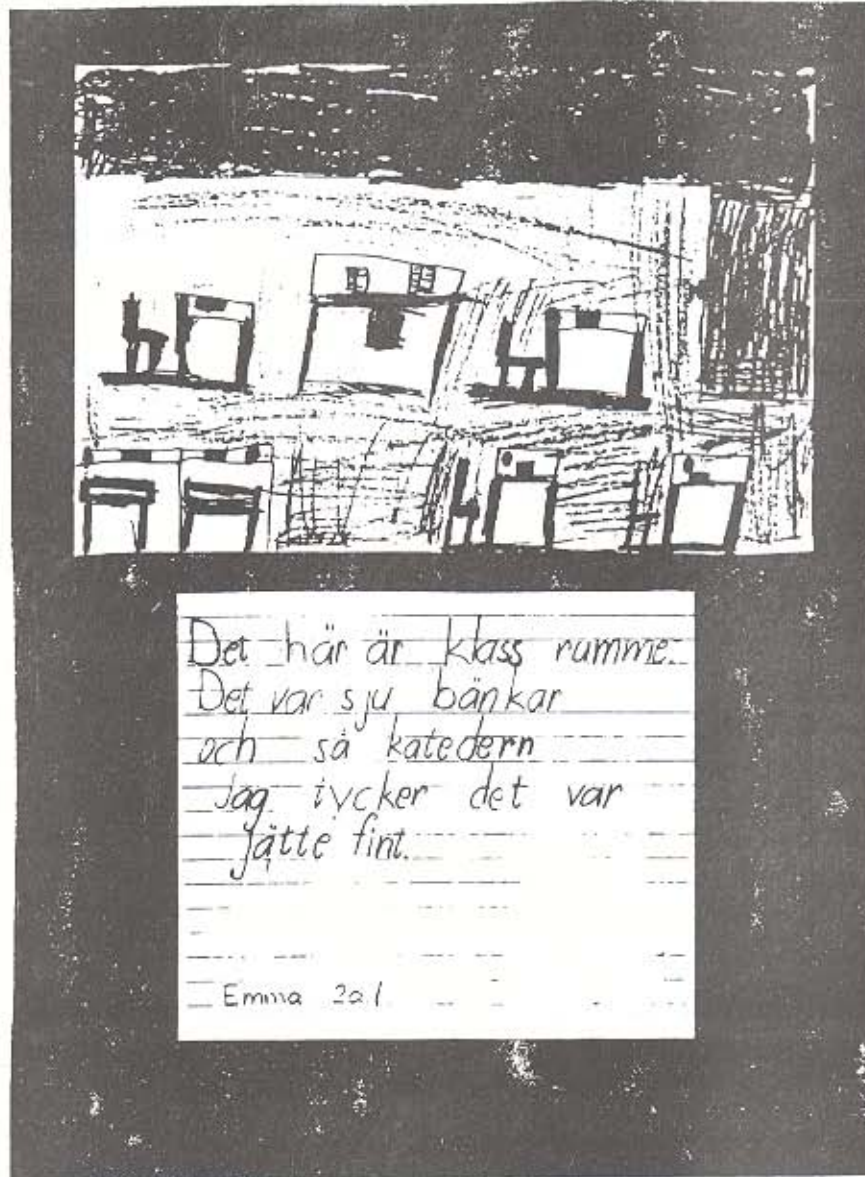 Det här är klass rumme.
Det var sju bänkar
och så katedern
Jag tycker det var
jätte fint.
Emma 2a1